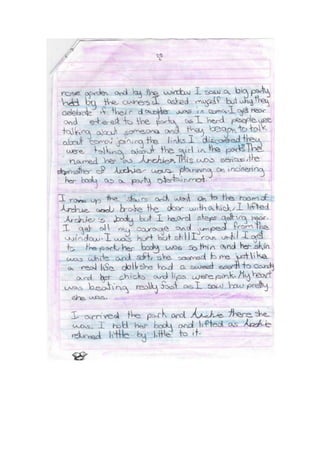 rose garden and by the window I saw a big party
held by the owners I asked myself but why they
celebrate if their daughter was in coma. I get near
and to the party as I herd people were
talking about someone and they began to talk
about joining the links I they
were talking about the girl in the park The
named her as This was
of Archie was planning on
her body as a party
I up the stairs and went on to the room of
Archie and broke the door with a kick. I lifted
Archie's body but I heard steps getting near.
I get all my courage and jumped from the
window. I was hurt but still I ran until I get
to the park her body was so thin and her skin
was white and soft, she seemed to me just like
a real life doll she had a sweet
and her chicks and lips were pink. My heart
was beating really fast as I saw how pretty
she was.
I arrived the park and Archie there she
was. I hold her body and lifted as Archie
returned little by little to it.